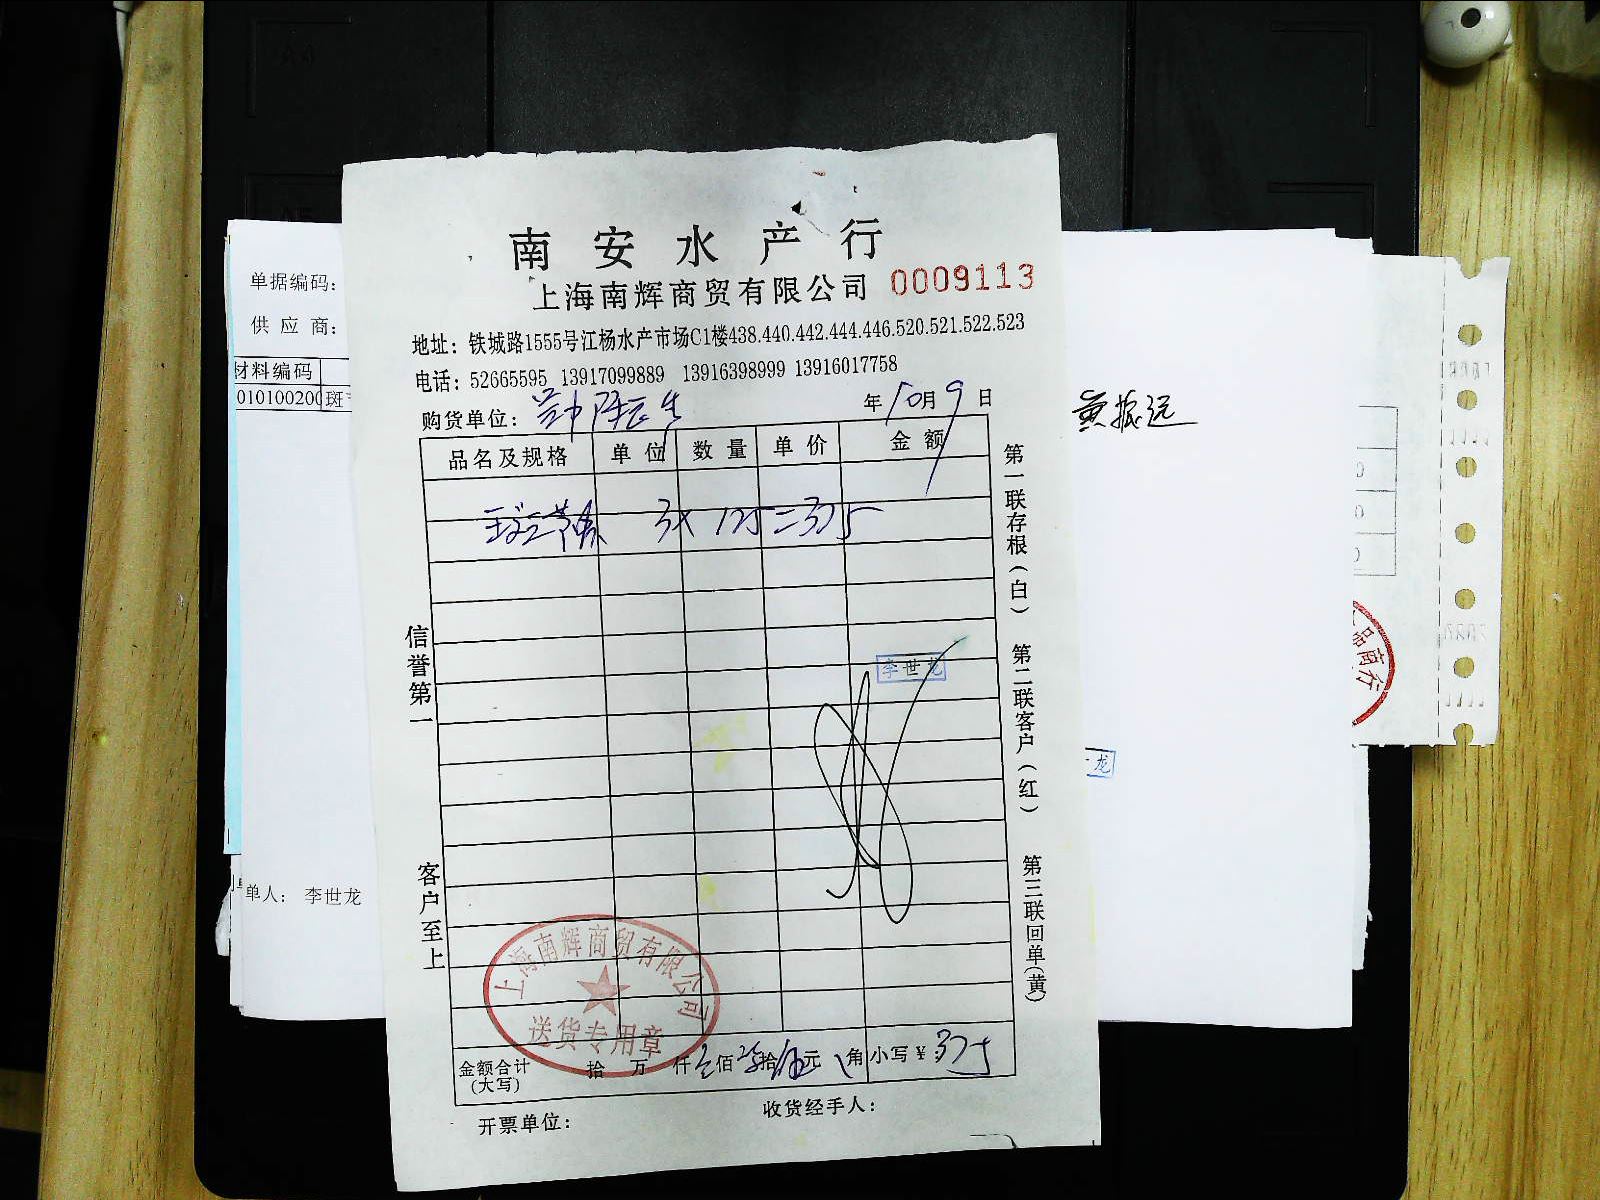 南安水产行
上海南辉商贸有限公司 0009113
地址：铁城路1555号江杨水产市场C1楼438.440.442.444.446.520.521.522.523
电话：52665595 13917099889 13916398999 13916017758
购货单位：
年10月9日
品名及规格 单位 数量 单价 金额
3× 125=375
第一联存根（白） 第二联客户（红） 第三联回单（黄）
信誉第一 客户至上
李世龙
上海南辉商贸有限公司
送货专用章
金额合计（大写） 拾 万 仟叁佰柒拾伍元 角 小写￥：375
开票单位： 收货经手人：
单据编码：
供应商：
材料编码
010100200 斑
单人： 李世龙
黄振远
龙
品商行